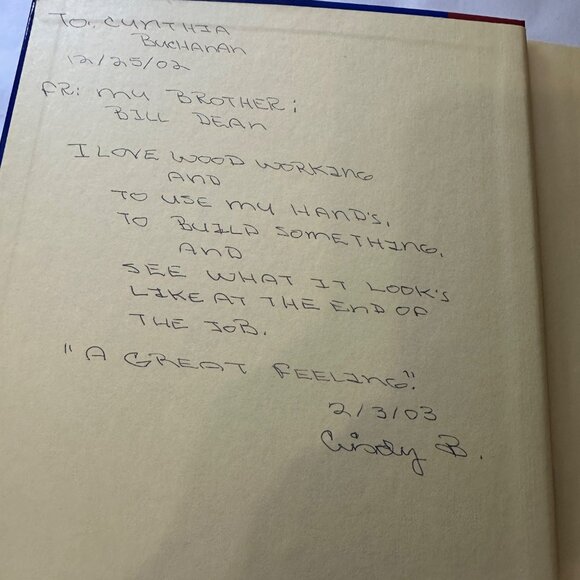 TO: CYNTHIA
BUCHANAN
12/25/02
FR: MY BROTHER:
BILL DEAN
I LOVE WOOD WORKING
AND
TO USE MY HAND'S,
TO BUILD SOMETHING.
AND
SEE WHAT IT LOOK'S
LIKE AT THE END OF
THE JOB.
"A GREAT FEELING".
2/3/03
Cindy B.